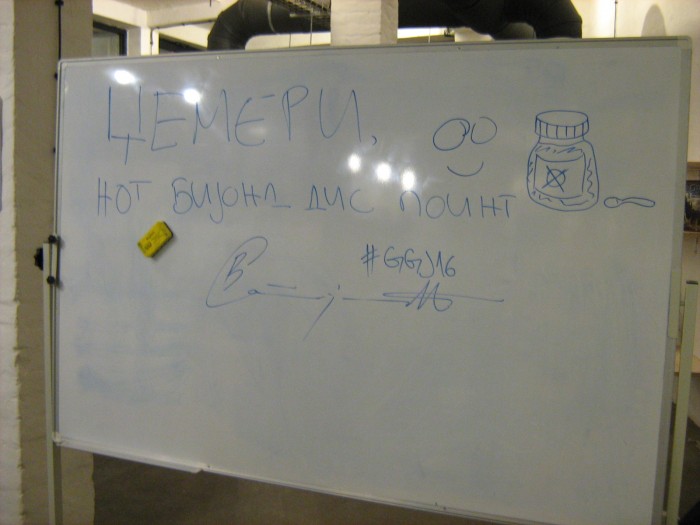 ЦЕМЕРИ,
НОТ БИЈОНД ДИС ПОИНТ
#GGJ16